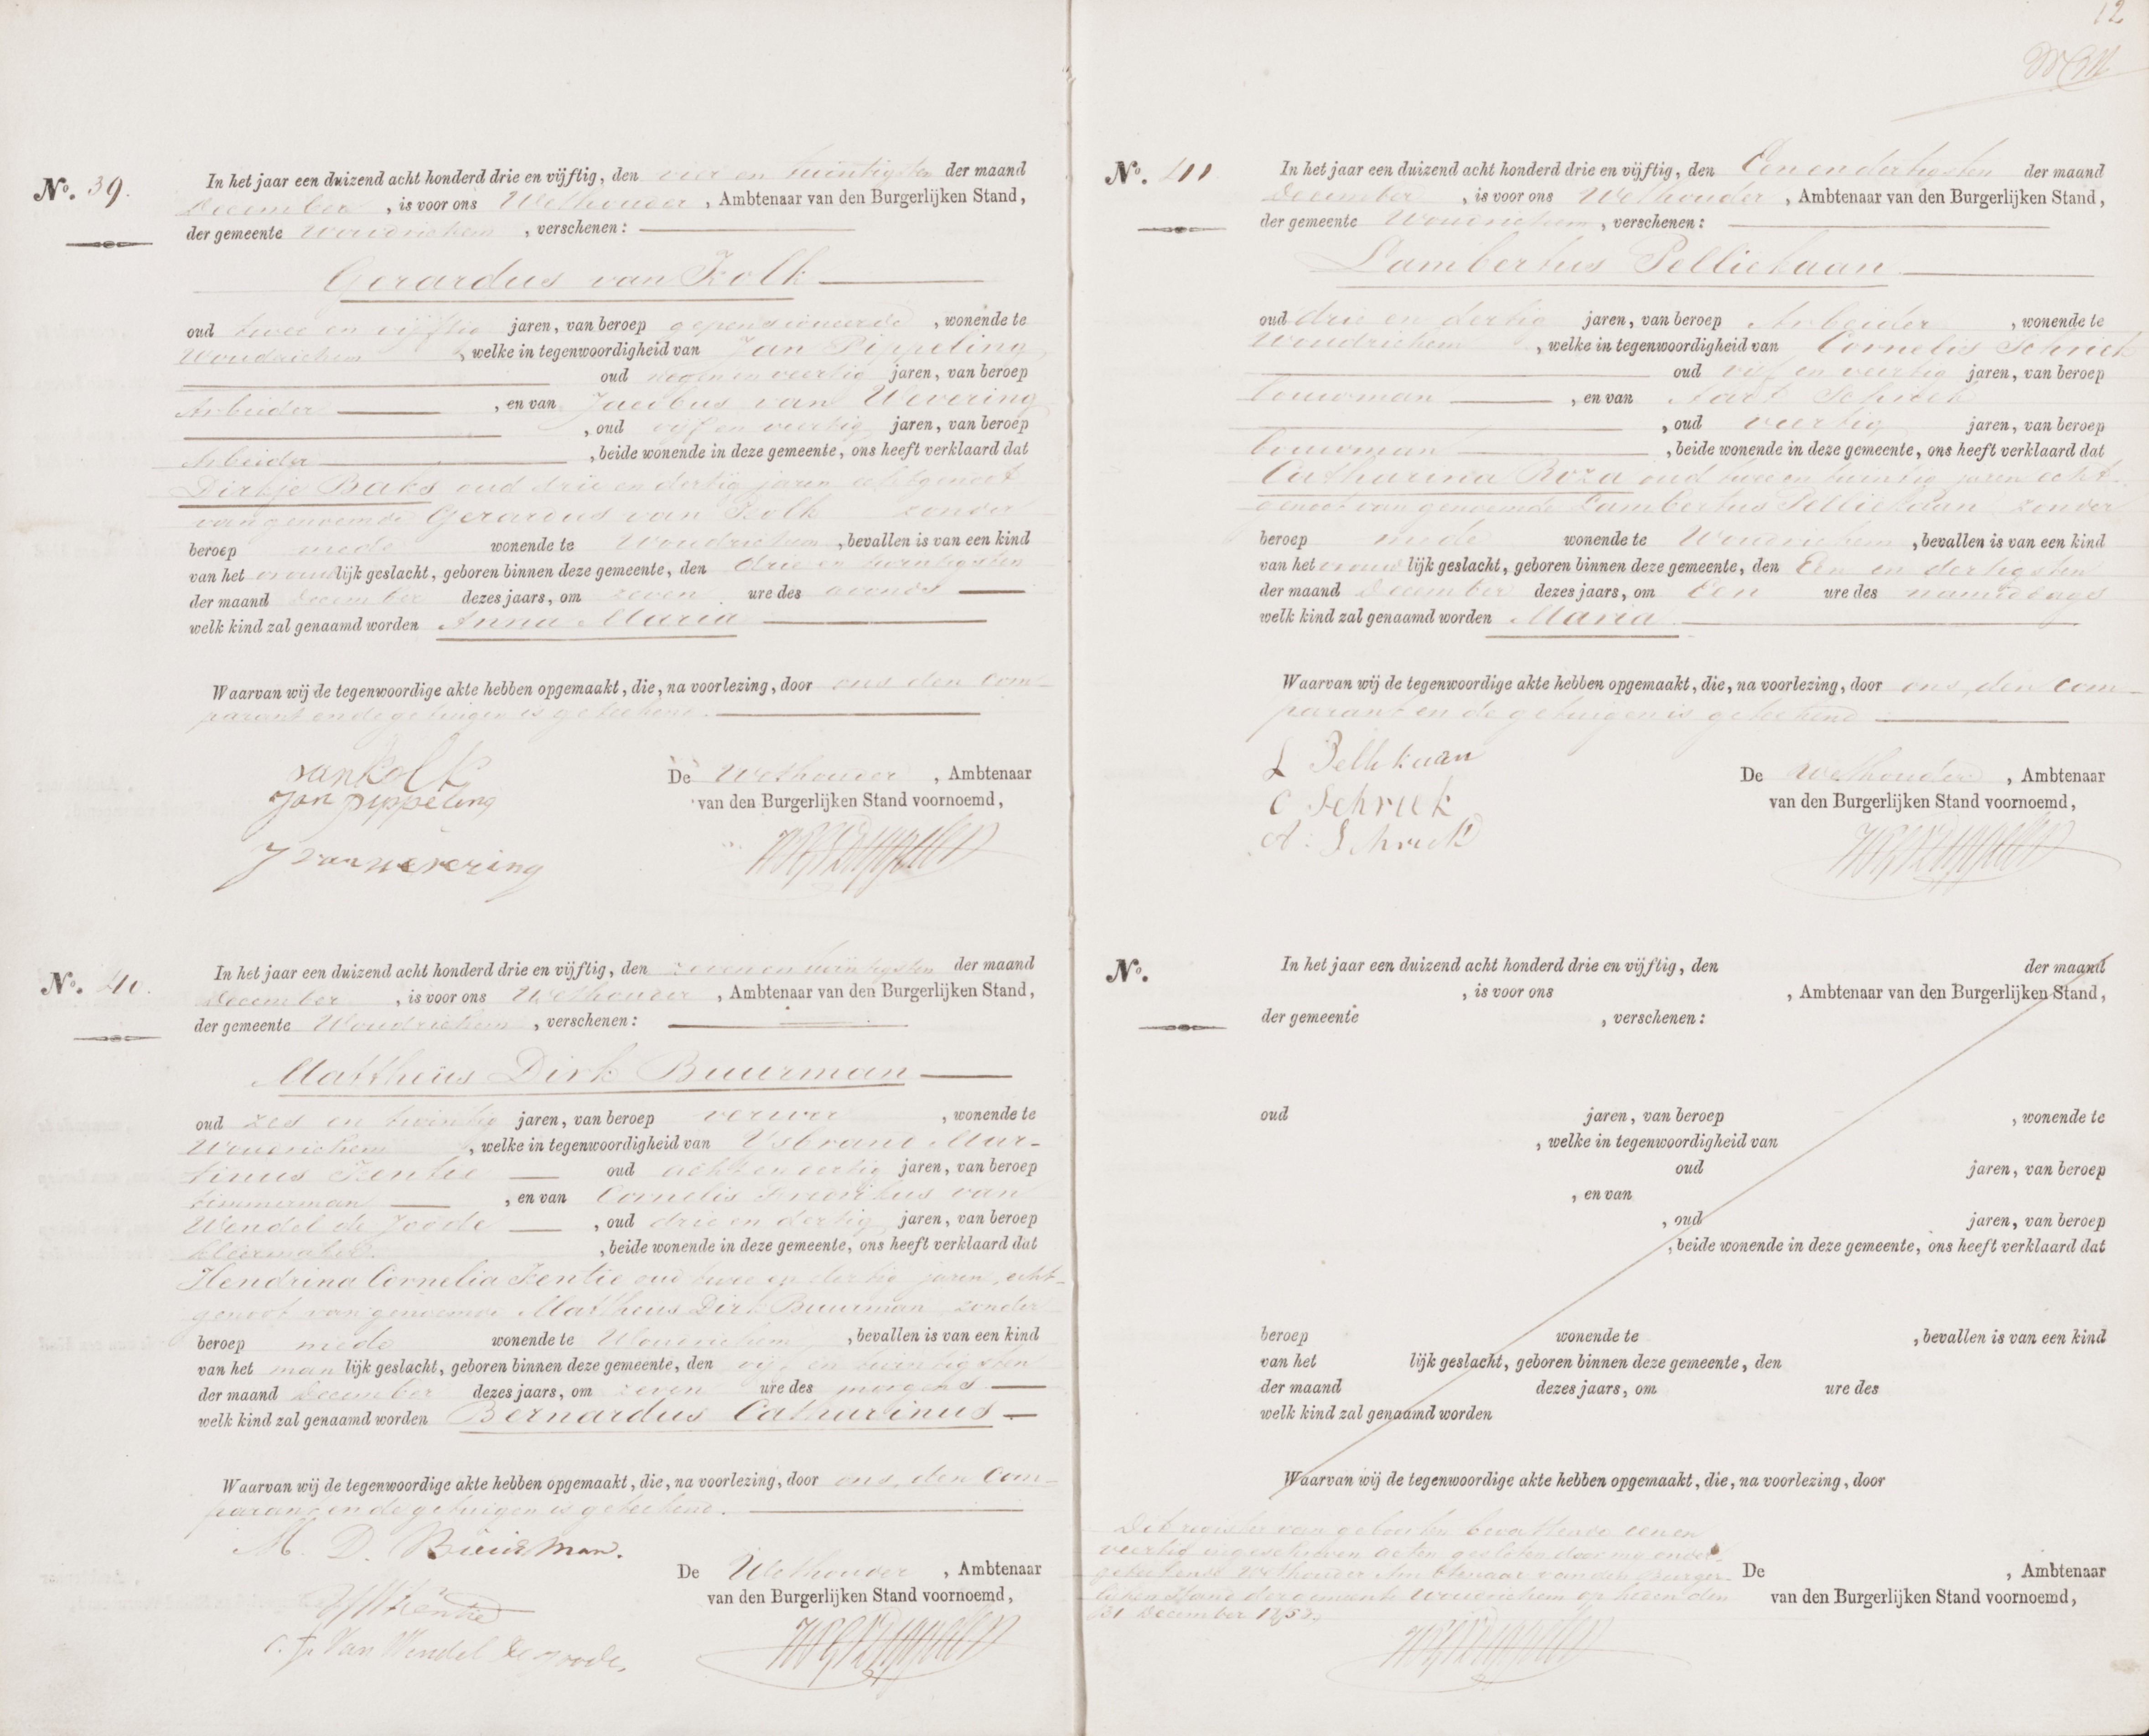 12
N°. 39.
In het jaar een duizend acht honderd drie en vijftig, den vier en twintigsten der maand
December , is voor ons Wethouder , Ambtenaar van den Burgerlijken Stand,
der gemeente Woudrichem , verschenen:
Gerardus van Kolk
oud twee en vijftig jaren, van beroep gepensioneerde , wonende te
Woudrichem , welke in tegenwoordigheid van Jan Pippeling
oud negen en veertig jaren, van beroep
Arbeider , en van Jacobus van Wevering
, oud vijf en veertig jaren, van beroep
Arbeider , beide wonende in deze gemeente, ons heeft verklaard dat
Dirkje Baks oud drie en dertig jaren echtgenoot
van genoemde Gerardus van Kolk zonder
beroep mede wonende te Woudrichem , bevallen is van een kind
van het vrouwlijk geslacht, geboren binnen deze gemeente, den drie en twintigsten
der maand December dezes jaars, om zeven ure des avonds
welk kind zal genaamd worden Anna Maria
Waarvan wij de tegenwoordige akte hebben opgemaakt, die, na voorlezing, door ons den com-
parant en de getuigen is geteekend.
van Kolk
Jan pippeling
J van wevering
De Wethouder , Ambtenaar
van den Burgerlijken Stand voornoemd,
N°. 40.
In het jaar een duizend acht honderd drie en vijftig, den zeven en twintigsten der maand
December , is voor ons Wethouder , Ambtenaar van den Burgerlijken Stand,
der gemeente Woudrichem , verschenen:
Mattheus Dirk Buurman
oud zes en twintig jaren, van beroep verwer , wonende te
Woudrichem , welke in tegenwoordigheid van Ysbrand Mar-
tinus Kentie oud acht en dertig jaren, van beroep
timmerman , en van Cornelis Fredrikus van
Wendel de Joode , oud drie en dertig jaren, van beroep
kleermaker , beide wonende in deze gemeente, ons heeft verklaard dat
Hendrina Cornelia Kentie oud twee en dertig jaren, echt-
genoot van genoemde Mattheus Dirk Buurman zonder
beroep mede wonende te Woudrichem , bevallen is van een kind
van het manlijk geslacht, geboren binnen deze gemeente, den vijf en twintigsten
der maand December dezes jaars, om zeven ure des morgens
welk kind zal genaamd worden Bernardus Catharinus
Waarvan wij de tegenwoordige akte hebben opgemaakt, die, na voorlezing, door ons, den com-
parant en de getuigen is geteekend.
M. D. Buurman.
Kentie
C. F. Van Wendel de Joode,
De Wethouder , Ambtenaar
van den Burgerlijken Stand voornoemd,
N°. 41
In het jaar een duizend acht honderd drie en vijftig, den Een en dertigsten der maand
December , is voor ons Wethouder , Ambtenaar van den Burgerlijken Stand,
der gemeente Woudrichem , verschenen:
Lambertus Pelliekaan
oud drie en dertig jaren, van beroep Arbeider , wonende te
Woudrichem , welke in tegenwoordigheid van Cornelis Schriek
oud vijf en veertig jaren, van beroep
bouwman , en van Aart Schriek
, oud veertig jaren, van beroep
bouwman , beide wonende in deze gemeente, ons heeft verklaard dat
Catharina Roza oud twee en twintig jaren echt-
genoot van genoemde Lambertus Pelliekaan zonder
beroep mede wonende te Woudrichem , bevallen is van een kind
van het vrouwlijk geslacht, geboren binnen deze gemeente, den Een en dertigsten
der maand December dezes jaars, om Een ure des namiddags
welk kind zal genaamd worden Maria
Waarvan wij de tegenwoordige akte hebben opgemaakt, die, na voorlezing, door ons, den com-
parant en de getuigen is geteekend
L Pellekaan
C Schriek
A. Schriek
De Wethouder , Ambtenaar
van den Burgerlijken Stand voornoemd,
N°.
In het jaar een duizend acht honderd drie en vijftig, den der maand
, is voor ons , Ambtenaar van den Burgerlijken Stand,
der gemeente , verschenen:
oud jaren, van beroep , wonende te
, welke in tegenwoordigheid van
oud jaren, van beroep
, en van
, oud jaren, van beroep
, beide wonende in deze gemeente, ons heeft verklaard dat
beroep wonende te , bevallen is van een kind
van het lijk geslacht, geboren binnen deze gemeente, den
der maand dezes jaars, om ure des
welk kind zal genaamd worden
Waarvan wij de tegenwoordige akte hebben opgemaakt, die, na voorlezing, door
Dit register van geboorten bevattende een en
veertig ingeschreven acten gesloten door mij onder-
geteekende Wethouder Ambtenaar van den Burger-
lijken Stand der gemeente Woudrichem op heden den
31 December 1853.
De , Ambtenaar
van den Burgerlijken Stand voornoemd,